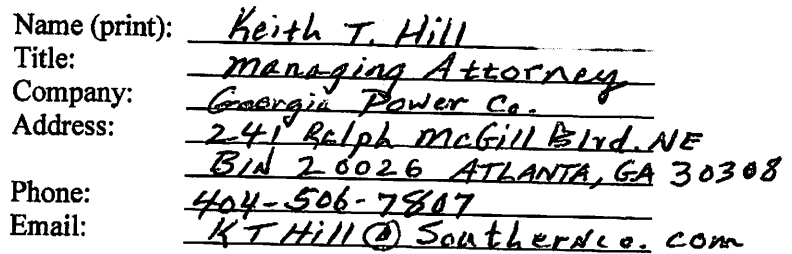 Name (print): Keith T. Hill
Title: Managing Attorney
Company: Georgia Power Co.
Address: 241 Ralph McGill Blvd. NE
BIN 20026 ATLANTA, GA 30308
Phone: 404-506-7807
Email: KTHill@Southernco.com